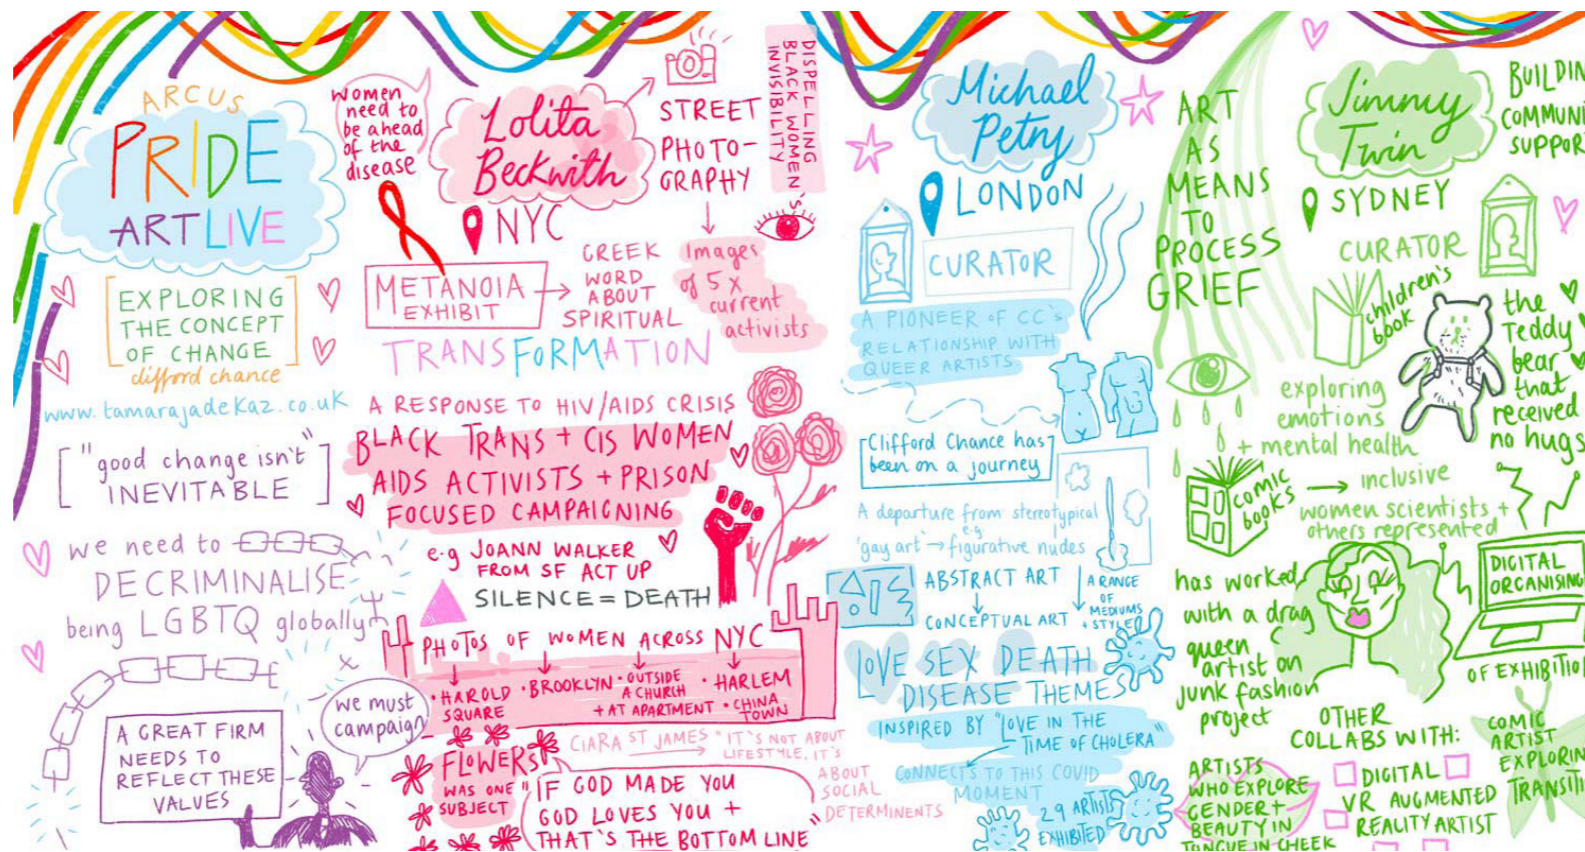 ARCUS
PRIDE
ART LIVE
EXPLORING
THE CONCEPT
OF CHANGE
clifford chance
www.tamarajadekaz.co.uk
"good change isn't"
INEVITABLE
we need to
DECRIMINALISE
being LGBTQ globally
A GREAT FIRM
NEEDS TO
REFLECT THESE
VALUES
we must
campaign
women
need to
be ahead
of the
disease
Lolita
Beckwith
NYC
STREET
PHOTO-
GRAPHY
DISPELLING
BLACK WOMEN'S
INVISIBILITY
METANOIA
EXHIBIT
GREEK
WORD
ABOUT
SPIRITUAL
TRANSFORMATION
Images
of 5x
current
activists
A RESPONSE TO HIV/AIDS CRISIS
BLACK TRANS + CIS WOMEN
AIDS ACTIVISTS + PRISON
FOCUSED CAMPAIGNING
e.g JOANN WALKER
FROM SF ACT UP
SILENCE = DEATH
PHOTOS OF WOMEN ACROSS NYC
• HAROLD
SQUARE
• BROOKLYN
• OUTSIDE
A CHURCH
+ AT APARTMENT
• HARLEM
• CHINA
TOWN
FLOWERS
WAS ONE
SUBJECT
CIARA ST JAMES
"IT'S NOT ABOUT
LIFESTYLE, IT'S
ABOUT
SOCIAL
DETERMINENTS
"IF GOD MADE YOU
GOD LOVES YOU +
THAT'S THE BOTTOM LINE"
Michael
Petry
LONDON
CURATOR
A PIONEER OF CC'S
RELATIONSHIP WITH
QUEER ARTISTS
Clifford Chance has
been on a journey
A departure from stereotypical
e.g.
'gay art' → figurative nudes
ABSTRACT ART
CONCEPTUAL ART
A RANGE
OF
MEDIUMS
+ STYLES
LOVE SEX DEATH
DISEASE THEMES
INSPIRED BY "LOVE IN THE
TIME OF CHOLERA"
CONNECTS TO THIS COVID
MOMENT
29 ARTISTS
EXHIBITED
ART
AS
MEANS
TO
PROCESS
GRIEF
Jimmy
Twin
SYDNEY
CURATOR
BUILDIN
COMMUNI
SUPPOR
children's
book
the
Teddy
bear
that
received
no hugs
exploring
emotions
+ mental health
comic
books
→ inclusive
women scientists +
others represented
has worked
with a drag
queen
artist on
junk fashion
project
DIGITAL
ORGANISING
OF EXHIBITIO
OTHER
COLLABS WITH:
DIGITAL
VR AUGMENTED
REALITY ARTIST
ARTISTS
WHO EXPLORE
GENDER +
BEAUTY IN
TONGUE IN CHEEK
COMIC
ARTIST
EXPLORIN
TRANSITI